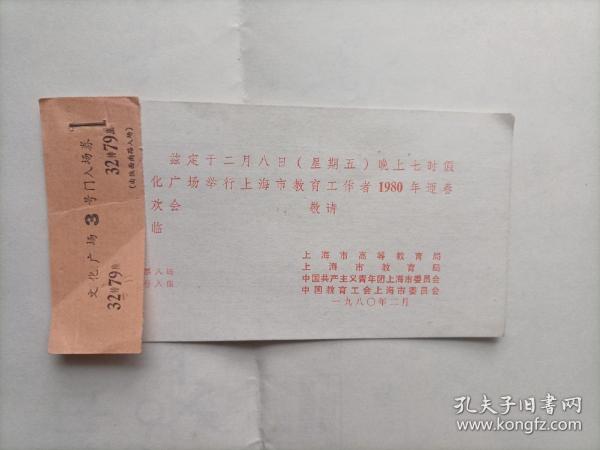 兹定于二月八日（星期五）晚上七时假
化广场举行上海市教育工作者1980年迎春
欢会 敬请
临
票入场
号入座
上海市高等教育局
上海市教育局
中国共产主义青年团上海市委员会
中国教育工会上海市委员会
一九八〇年二月
文化广场3号门入场券
32排79座
32排79座
(由陕西南路入场)
孔夫子旧书网
www.kongfz.com